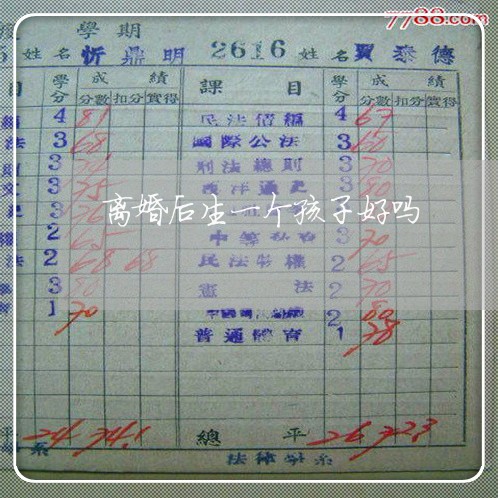 7788.com
學期
姓名 忻鼎明 2616 姓名 賈泰德
目 學分 成績 課目 學分 成績
分數 扣分 實得 分數 扣分 實得
4 81 民法債編 4 67
法 3 68 國際公法 3 60
3 刑法總則 3 70
3 75 西洋通史 3 80
离婚后生一个孩子好吗
2 65 3 70
法 2 68 68 民法物權 2 65
3 80 憲法 2 70
1 70 2 80
普通體育 1 78
平 24 74.1 總平 26 72.3
系 法律學系